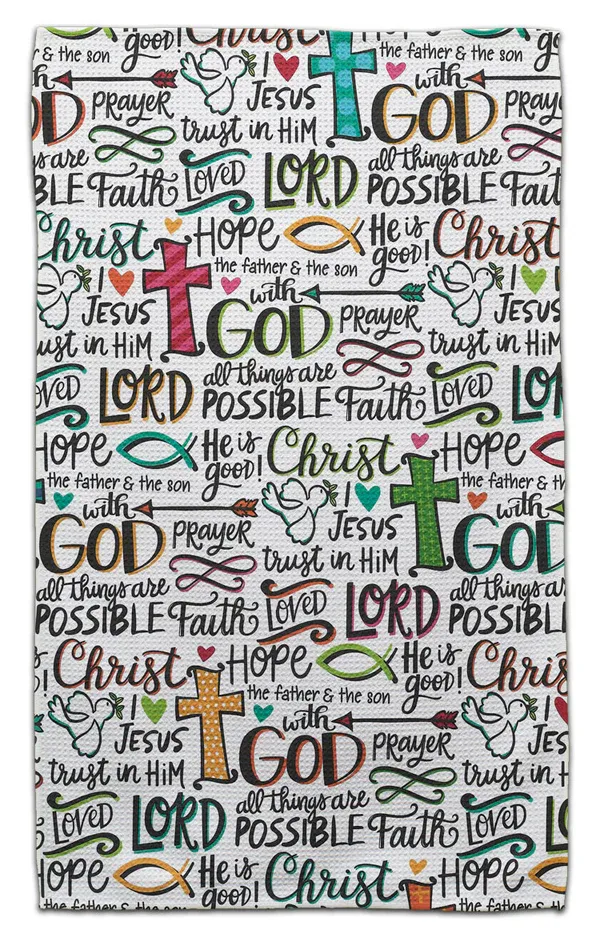 good! Christ
the father & the son
I
with
GOD PRAYER JESUS GOD PRAY
trust in HiM
s are all things are
BLE Faith LOVED LORD POSSIBLE Fait
Christ HOPE He is good! Christ
I the father & the son I
JESUS with JESUS
GOD PRAYER
ust in HiM trust in HiM
OVED LORD all things are LOVED LO
POSSIBLE Faith
HOPE He is good! Christ HOPE
the father & the son I the father & th
with JESUS with
GOD PRAYER GOD
trust in HiM
all things are LOVED LORD all things a
POSSIBLE Faith POSSIBL
Christ HOPE He is good! Chris
I the father & the son I
JESUS with JESUS
GOD PRAYER
trust in HiM trust in H
LOVED LORD all things are LOVED
POSSIBLE Faith
HOPE He is good! Christ HOPE
the father & the son